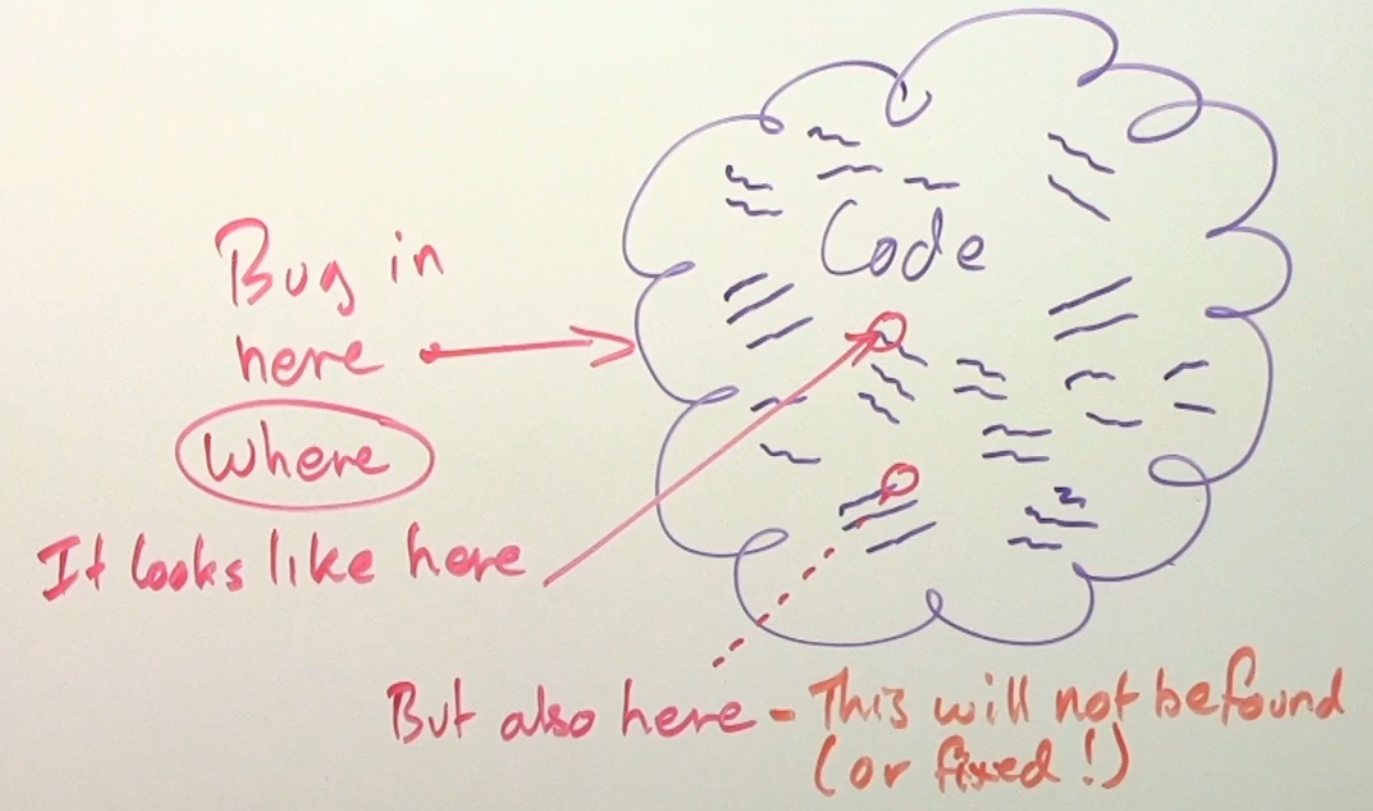 Code
Bug in
here
Where
It looks like here
But also here - This will not be found
(or fixed!)